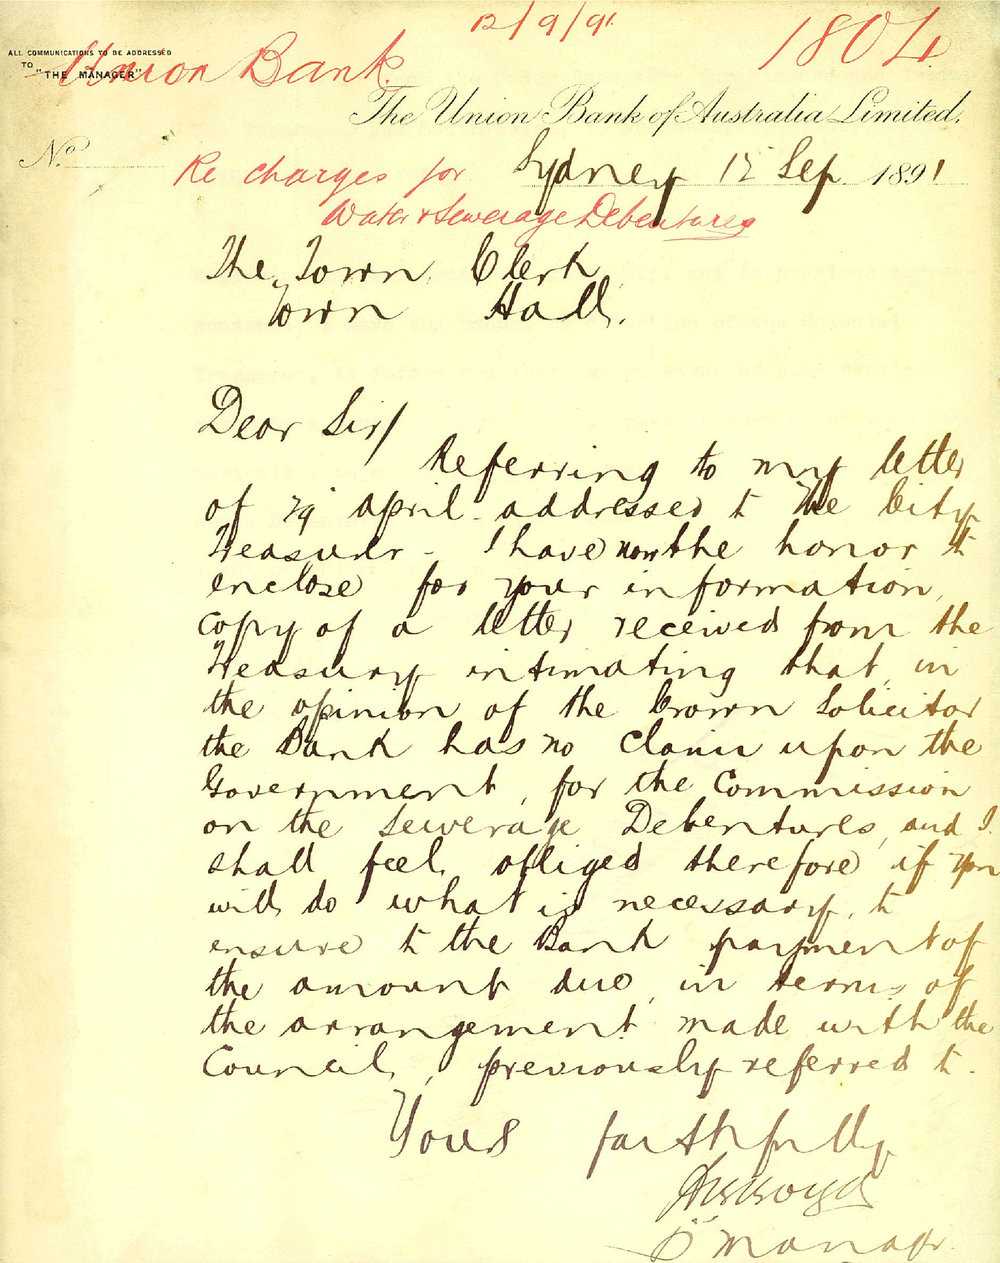 12/9/91
1804
ALL COMMUNICATIONS TO BE ADDRESSED
TO
"THE MANAGER"
Union Bank.
The Union Bank of Australia Limited.
No
Sydney 12 Sep 1891
Re charges for
Water & Sewerage Debentures
The Town Clerk
Town Hall.
Dear Sir/
Referring to my letter
of april addressed to the City
Treasurer - I have now the honor to
enclose for your information,
copy of a letter received from the
Treasury intimating that, in
the opinion of the Crown Solicitor
the Bank has no claim upon the
Government, for the Commission
on the Sewerage Debentures, and I
shall feel obliged therefore if you
will do what is necessary, to
ensure to the Bank payment of
the amount due, in terms of
the arrangement made with the
Council, previously referred to.
Yours faithfully
Manager